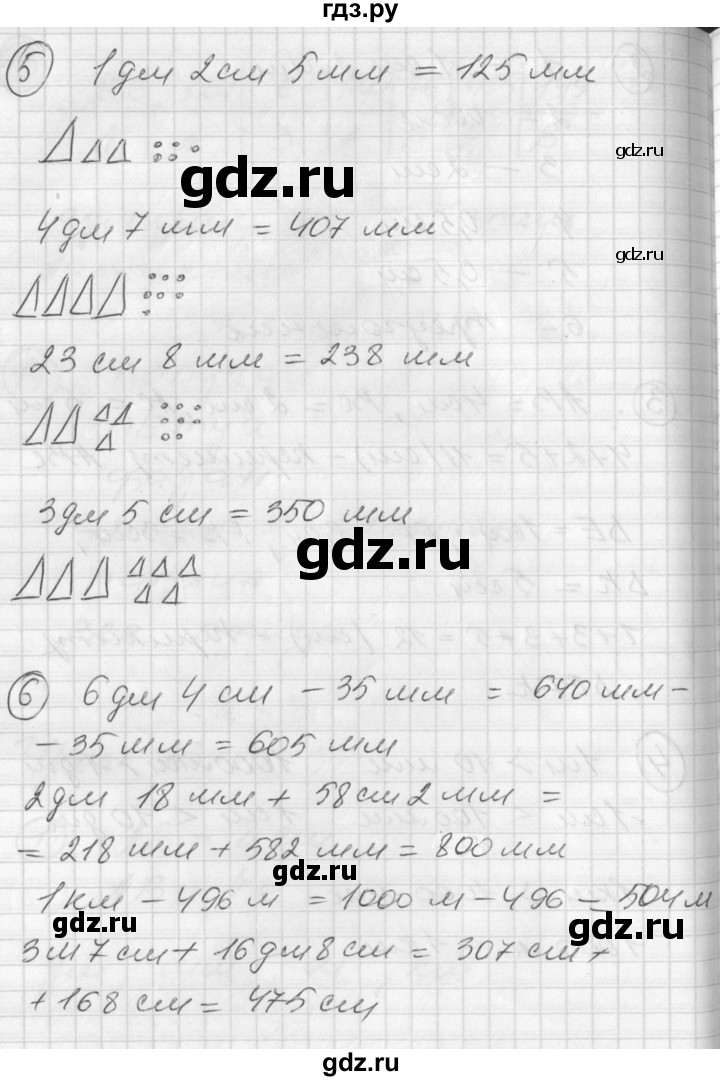 гдз.ру
5 1дм 2см 5мм = 125мм
gdz.ru
gdz.ru
4дм 7мм = 407 мм
gdz.ru
23 см 8 мм = 238 мм
3дм 5 см = 350 мм
gdz.ru
6 6дм 4см - 35мм = 640мм-
- 35мм = 605 мм
2дм 18 мм + 58см2мм =
= 218 мм + 582 мм = 800мм
gdz.ru
1км - 496м = 1000м - 496 = 504м
gdz.ru
3м7см + 16дм8см = 307см +
+ 168 см = 475см
gdz.ru